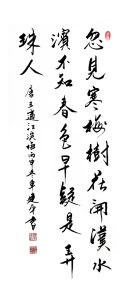 忽見寒梅樹花開漢水
濱不知春色早疑是弄
珠人
唐王適江濱梅丙申冬草建平書